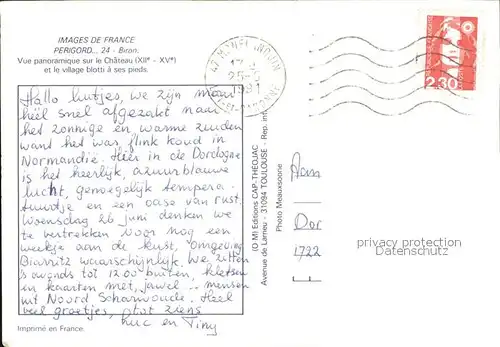 IMAGES DE FRANCE
PERIGORD... 24 - Biron.
Vue panoramique sur le Château (XIIe - XVe)
et le village blotti à ses pieds.
Hallo luitjes, we zijn maar
heel snel afgezakt naar
het zonnige en warme zuiden
want het was flink koud in
Normandië. Hier in de Dordogne
is het heerlijk, azuurblauwe
lucht, genoegelijk tempera-
tuurtje en een oase van rust.
Woensdag 26 juni denken we
te vertrekken voor nog een
weekje aan de kust, omgeving
Biarritz waarschijnlijk. We zitten
's avonds tot 12.00 buiten, kletsen
en kaarten met, jawel... mensen
uit Noord Scharwoude. Heel
veel groetjes, tot ziens
Luc en Tiny
Imprimé en France.
(O M) Editions CAP-THEOJAC
Avenue de Larrieu - 31094 TOULOUSE - Rep. int
Photo Melauxsonne
47
25-6
1991
LOT-ET-GARONNE
2,30
Aan
Dor
1722
property protection
Datenschutz